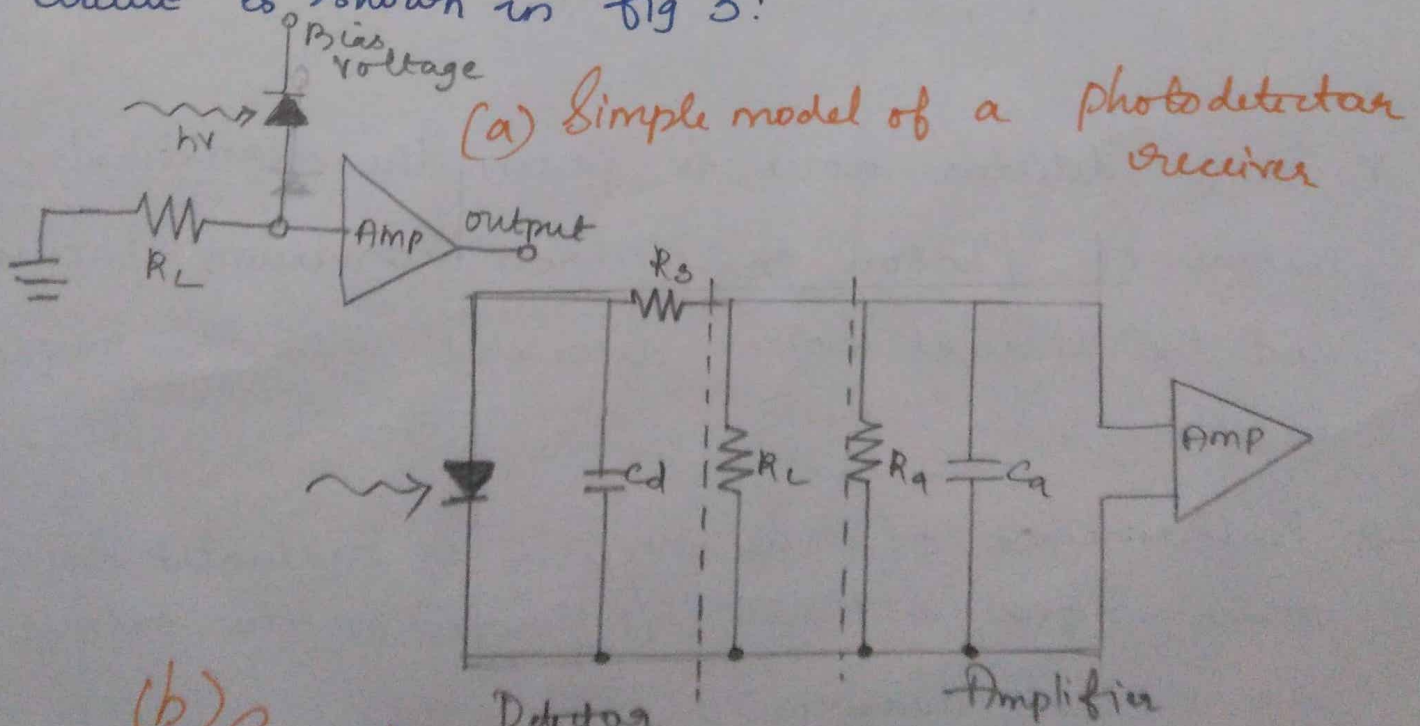 is shown in fig 3.
Bias
voltage
hv
(a) Simple model of a photodetector
receiver
Amp
output
RL
Rs
Cd
RL
Ra
Ca
Amp
(b)
Detector
Amplifier